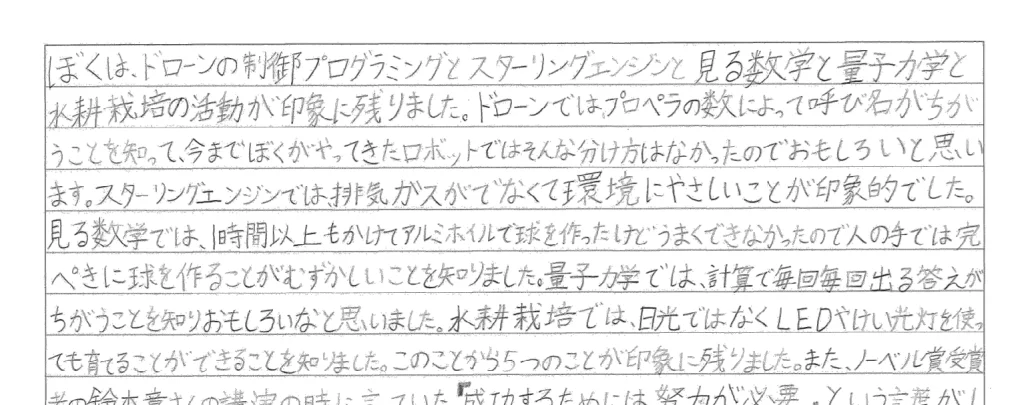 ぼくは、ドローンの制御プログラミングとスターリングエンジンと見る数学と量子力学と
水耕栽培の活動が印象に残りました。ドローンでは、プロペラの数によって呼び名がちが
うことを知って、今までぼくがやってきたロボットではそんな分け方はなかったのでおもしろいと思い
ます。スターリングエンジンでは、排気ガスがでなくて環境にやさしいことが印象的でした。
見る数学では、1時間以上もかけてアルミホイルで球を作ったけどうまくできなかったので人の手では完
ぺきに球を作ることがむずかしいことを知りました。量子力学では、計算で毎回毎回出る答えが
ちがうことを知りおもしろいなと思いました。水耕栽培では、日光ではなくLEDやけい光灯を使っ
ても育てることができることを知りました。このことから5つのことが印象に残りました。また、ノーベル賞受賞
者の鈴木章さんの講演の時に言っていた『成功するためには努力が必要。という言葉が